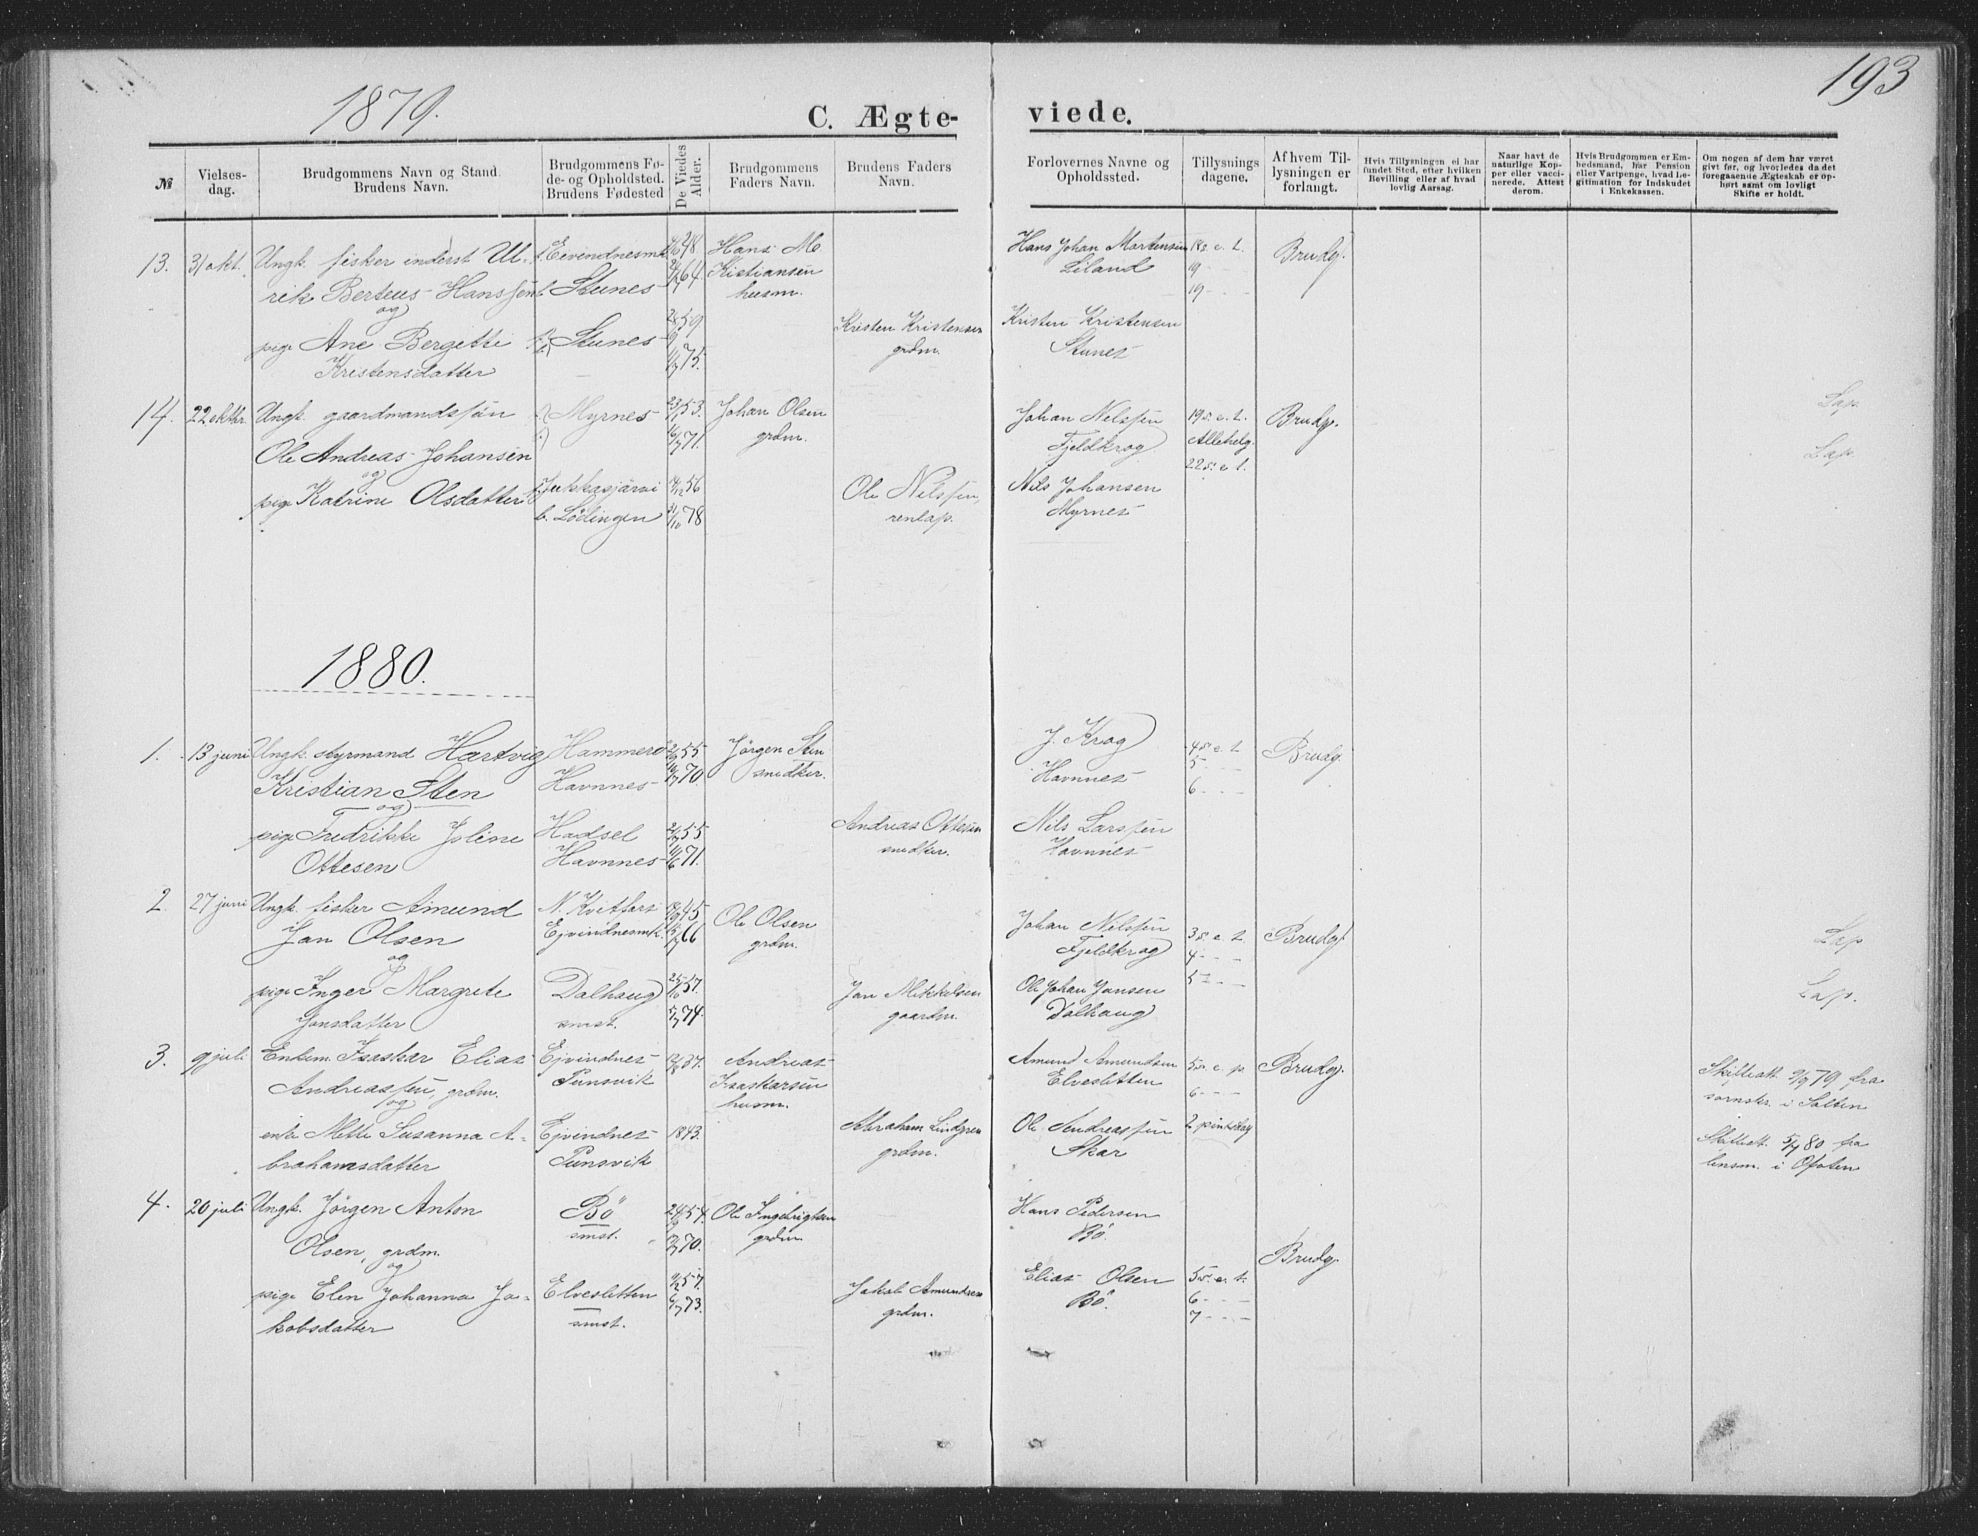 193
1879.
C. Ægte-
viede.
№
Vielses-
dag.
Brudgommens Navn og Stand.
Brudens Navn.
Brudgommens Fø-
de- og Opholdsted.
Brudens Fødested
De Viedes
Alder.
Brudgommens
Faders Navn.
Brudens Faders
Navn.
Forlovernes Navne og
Opholdssted.
Tillysnings
dagene.
Af hvem Til-
lysningen er
forlangt.
Hvis Tillysningen ei har
fundet Sted, efter hvilken
Bevilling eller af hvad
lovlig Aarsag.
Naar havt de
naturlige Kop-
per eller vacci-
nerede. Attest
derom.
Hvis Brudgommen er Em-
bedsmand, har Pension
eller Vartpenge, hvad Le-
gitimation for Indskudet
i Enkekassen.
Om nogen af dem har været
givt før, og hvorledes da det
foregaaende Ægteskab er op-
hørt samt om lovligt
Skifte er holdt.
13.
31 okt.
Ungk. fisker inderst Ul-
rik Berteus Hanssen
og
pige Ane Bergitte
Kristensdatter
f. Eivindnesmk
b. Stunes
Stunes
48
64.
59
75.
Hans M
Kristiansen
husm.
Kristen Kristensen
grdm.
Hans Johan Mortensen
Leiland
Kristen Kristensen
Stunes
18 s. e. t.
19 - -
19 - - -
Brudg.
14.
22 oktbr.
Ungk. gaardmandssøn
Ole Andreas Johansen
og
pige Katrine Olsdatter
Myrnes
f. Jukkasjärvi
b. Lödingen
23/1 53.
71.
56
78
Johan Olsen
grdm.
Ole Nilssen,
renlap.
Johan Nilssen
Fjeldkrog
Nils Johansen
Myrnes
19 s. e. t.
Allehelg.
22 s. e. t.
Brudg.
Lap.
Lap.
1880.
1.
13 juni
Ungk. styrmand Hartvig
Kristian Sten
og
pige Fredrikke Joline
Ottesen
Hammerö
Havnnes
Hadsel
Havnnes
55
70.
55
71.
Jörgen Sten
snedker.
Andreas Ottesen
snedker.
J. Krog
Havnnes
Nils Larssen
Havnnes
4 s. e. t
5 - - -
6 - - -
Brudg.
2.
27 juni
Ungk. fisker Amund
Jan Olsen
og
pige Inger Margrete
Jonsdatter
N. Kvitfors
Ejvindnesmk.
Dalhaug
smst.
45
66
57.
74.
Ole Olsen
grdm.
Jon Mikkelsen
gaardm.
Johan Nilssen
Fjeldkrog
Ole Johan Jonsen
Dalhaug
3 s. e. t.
4 - - -
5 - - -
Brudg.
Lap
Lap.
3.
9 juli
Enkem. Isaskar Elias
Andreassen, grdm.
og
enke Mette Susanna A-
brahamsdatter
Ejvindnes
Punsvik
Ejvindnes
Punsvik
37.
1843.
Andreas
Isaskarsen
husm.
Abraham Lindgren
grdm.
Amund Amundsen
Elvesletten
Ole Andreassen
Skar
5 s. e. p
6 - - -
2 pintsdag
Brudg.
Skifteatt. 2/9 79 fra
sornskr. i Salten
Skifteatt. 5/7 80 fra
lensm. i Ofoten
4.
20 juli
Ungk. Jörgen Anton
Olsen, grdm.
og
pige Elen Johanna Ja-
kobsdatter
Bö
smst.
Elvesletten
smst.
54.
70.
57.
73.
Ole Ingebrigtsen
grdm.
Jakob Amundsen
grdm.
Hans Pedersen
Bö.
Elias Olsen
Bö.
5 s. e. t.
6 - - -
7 - - -
Brudg.